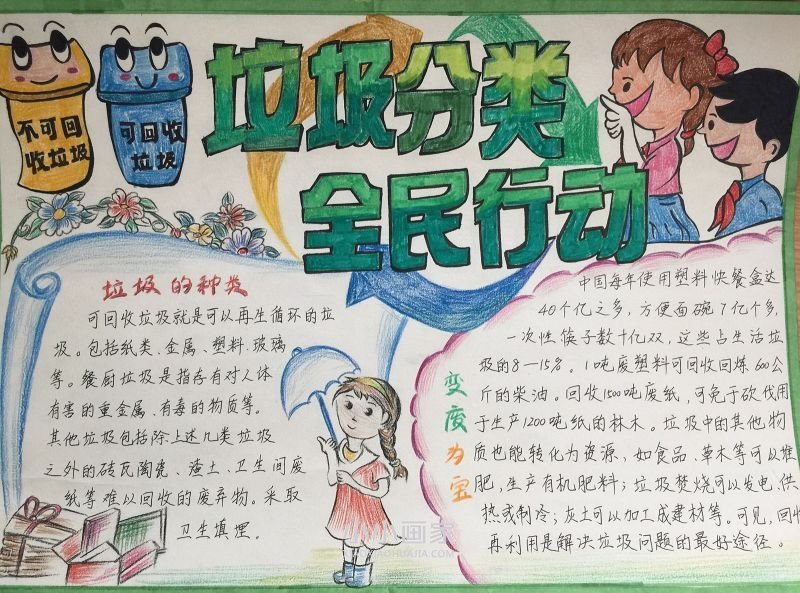 不可回
收垃圾
可回收
垃圾
垃圾分类
全民行动
垃圾的种类
可回收垃圾就是可以再生循环的垃
圾。包括纸类、金属、塑料、玻璃
等。餐厨垃圾是指存有对人体
有害的重金属、有毒的物质等。
其他垃圾包括除上述几类垃圾
之外的砖瓦陶瓷、渣土、卫生间废
纸等难以回收的废弃物。采取
卫生填埋。
变废为宝
中国每年使用塑料快餐盒达
40个亿之多，方便面碗7亿个多，
一次性筷子数十亿双，这些占生活垃
圾的8—15%。1吨废塑料可回收回炼600公
斤的柴油。回收1500吨废纸，可免于砍伐用
于生产1200吨纸的林木。垃圾中的其他物
质也能转化为资源，如食品、草木等可以堆
肥，生产有机肥料；垃圾焚烧可以发电、供
热或制冷；灰土可以加工成建材等。可见，回收
再利用是解决垃圾问题的最好途径。
画家